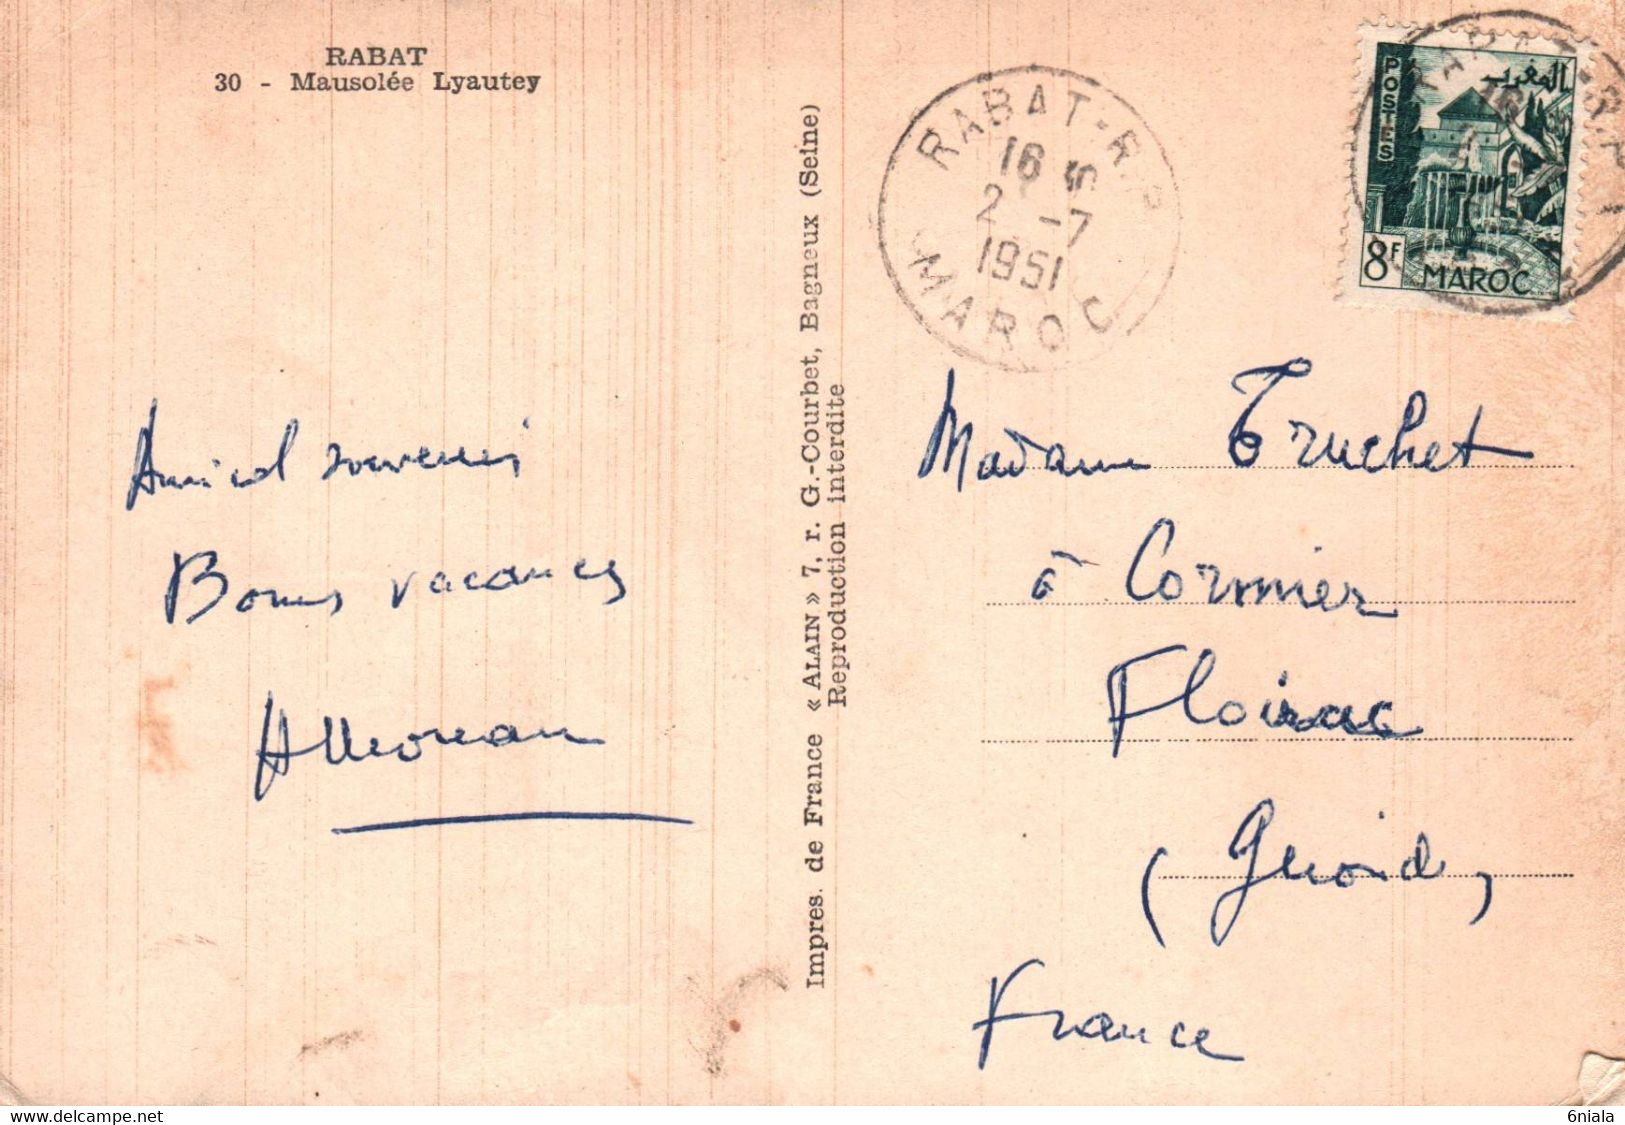 RABAT
30 - Mausolée Lyautey
Amical souvenir
Bonnes vacances
AMoreau
Impres. de France « ALAIN » 7, r. G.-Courbet, Bagneux (Seine)
Reproduction interdite
RABAT-R.P
16 
2 -7
1951
MAROC
RABAT-R.P
POSTES
المغرب
8F
MAROC
Madame Truchet
à Cormier
Floirac
(Gironde)
France
delcampe.net
6niala